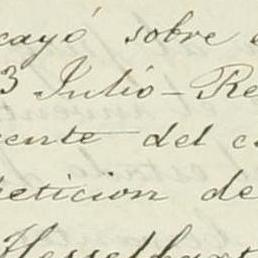 cayó sobre e
3 Julio - Re
ente del c
etición de
Hesselbart